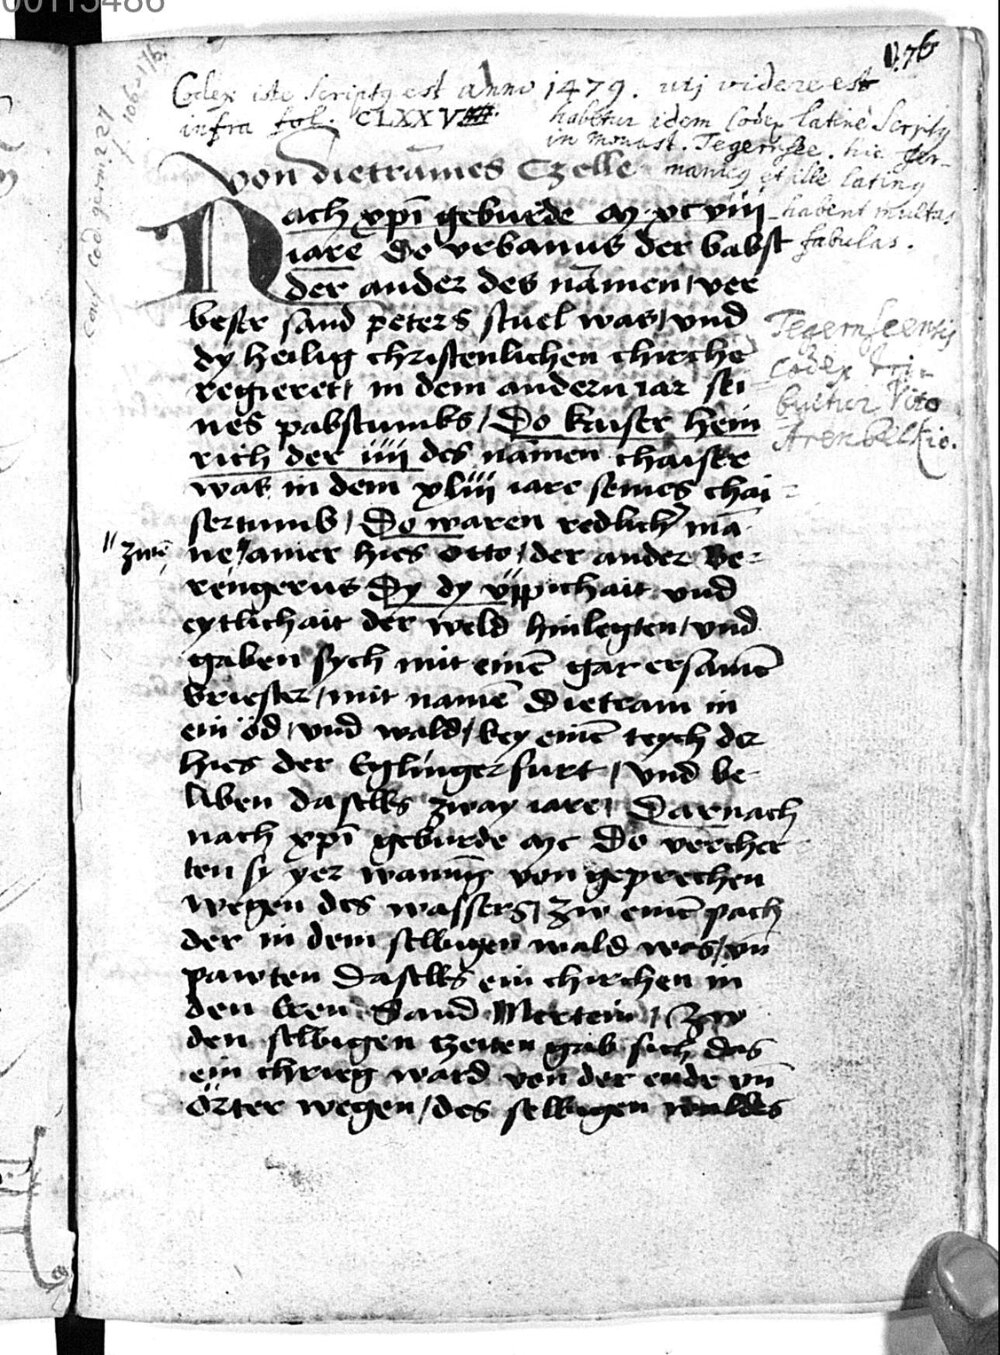 00115486
176
Codex iste scriptus est Anno 1479. uti videre est
infra fol. CLXXV
habetur idem Codex latine scripty
in monast. Tegernsee. hic Ger-
manicy et ille latiny
habent multas
fabulas.
Tegernseensis
Codex tri-
buitur Vito
Arenpekio.
Conf. Cod. germ. 227
f. 106-176.
Von dietrames Czelle
Nach xpi geburde M xcviii
iare Do vrbanus der babst
der ander des namen / ver
beser sand peters stuel was / vnd
dy heilig christenlichen chirche
regieret / in dem andern iar sei
nes pabstumbs / Do kaiser hein
rich der iiii des namen chaiser
was in dem xliii iare seines chai=
sertumb / Do waren redlich ma
zwe
ne / ainer hies otto / der ander Be=
rengerus Dy dy üppichait vnd
eytlichait der weld hinlegten / vnd
gaben sych mit eine gar ersame
briester / mit name Dietram in
ein öd / vnd wald / bey eine teych der
hies der Eglingerfurt / vnd be
liben daselbs zway iare / Darnach
nach xpi geburde Mc Do vercher
ten sy yer wanung von geprechen
wegen des wassers / zw eine pach
der in dem selbigen wald was / vn
pawten daselbs ein chirchen in
den eren Sand Mertein / Zw
den selbigen tzeiten gab sich das
ein chrieg ward von der ende vn
örter wegen / des selbigen waldes